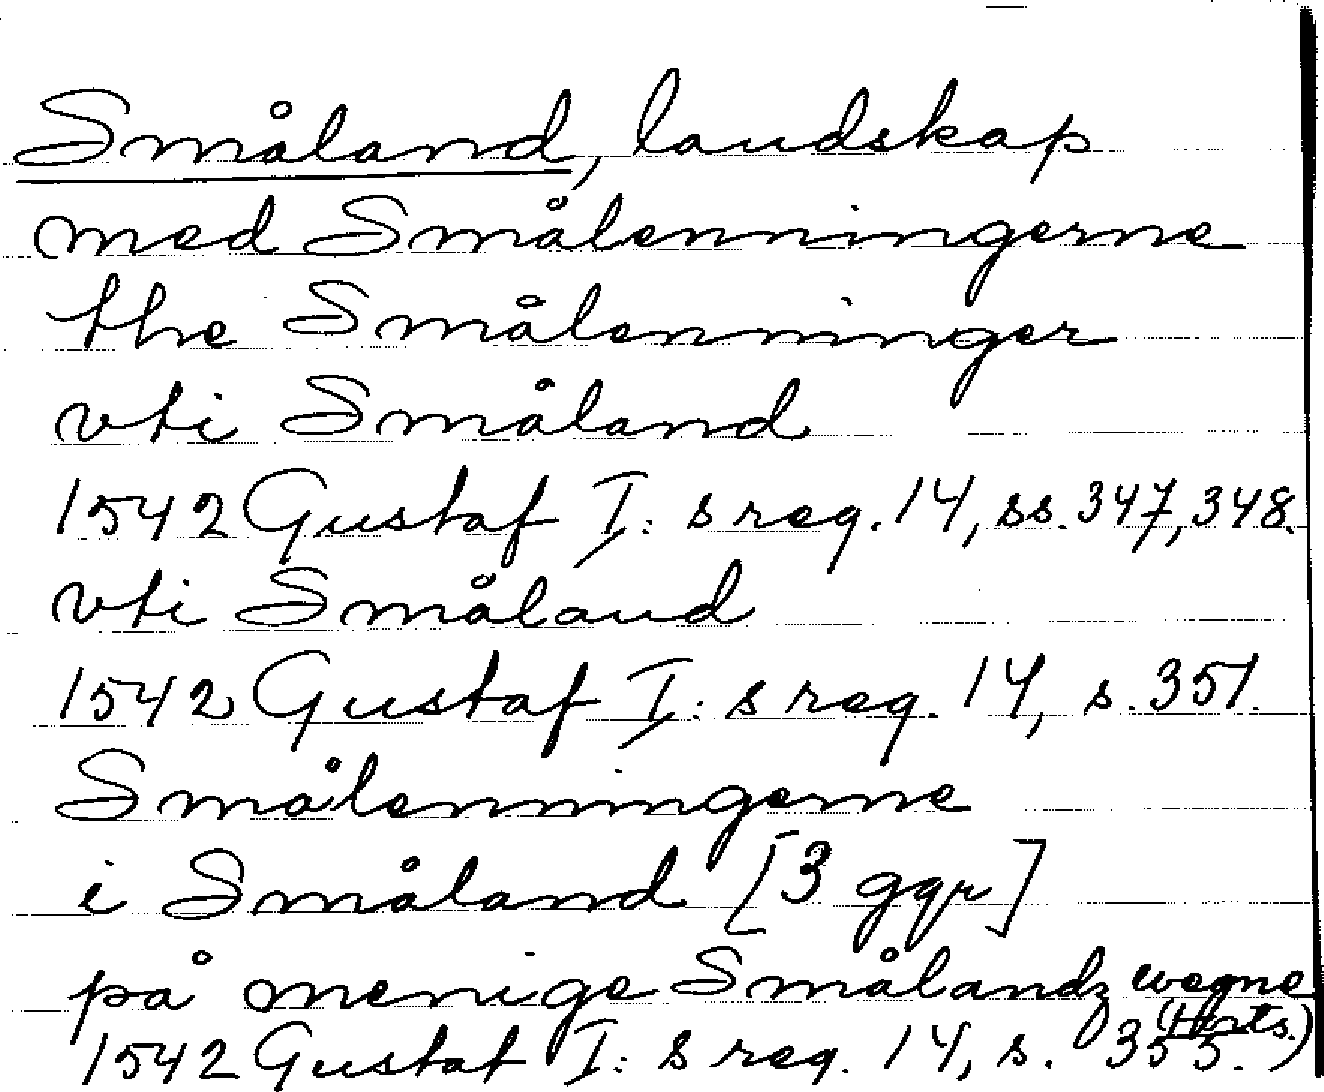 Småland, landskap
med Smålenningerne
the Smålenninger
vti Småland
1542 Gustaf I: s reg. 14, ss. 347, 348.
vti Småland
1542 Gustaf I: s reg. 14, s. 351.
Smålenningerne
i Småland [3 ggr]
på menige Smålandz wegne
(forts.)
1542 Gustaf I: s reg. 14, s. 355.